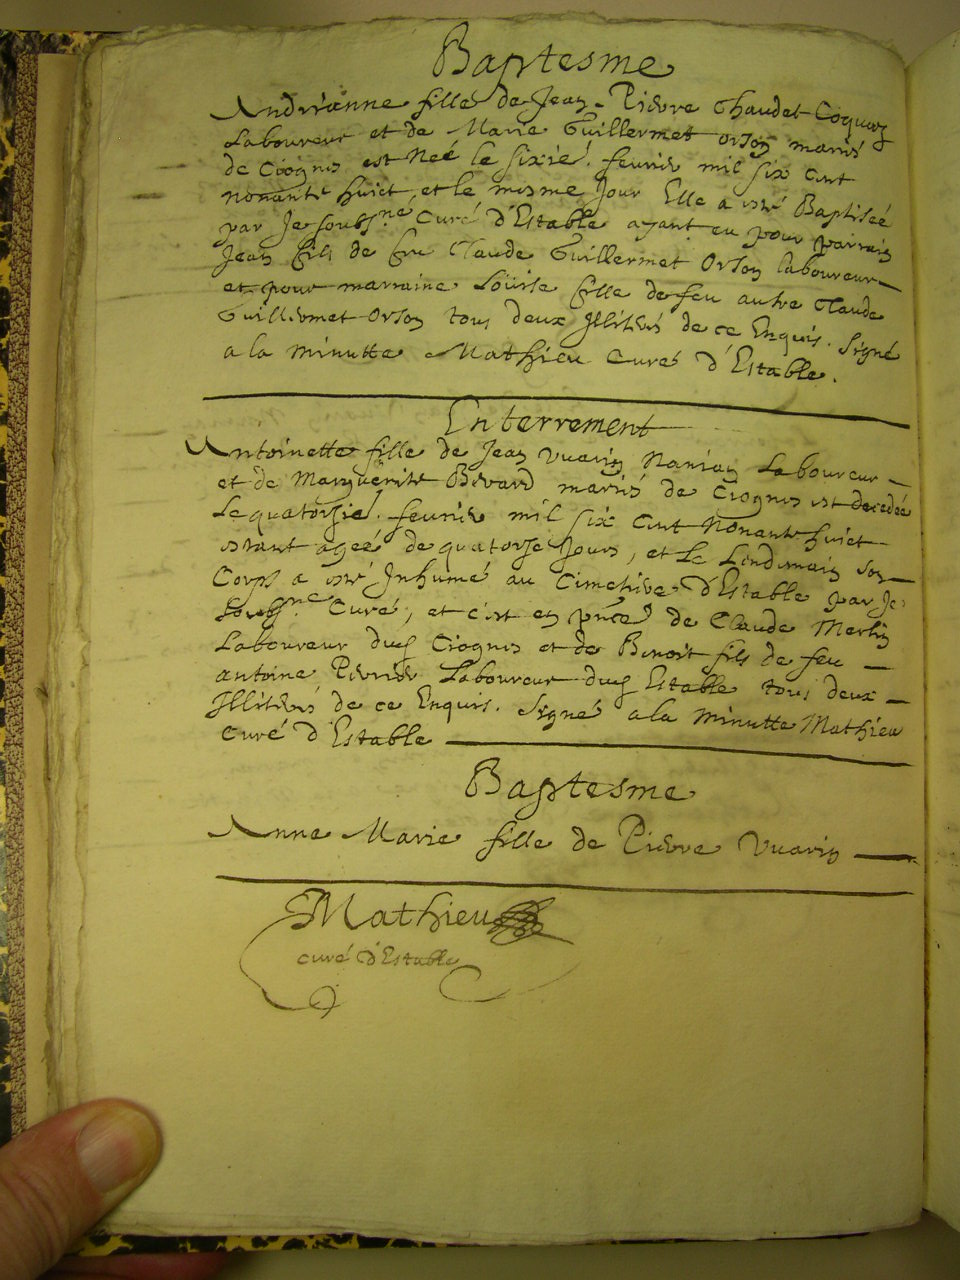 Baptesme
Andrianne fille de Jean-Pierre Chaudet Coquaz
Laboureur et de Marie Guillermet Orson mariés
de Ciognis est Neé le sixie. feurier mil six cent
nonante huict, et le mesme jour Elle a esté Baptiseé
par Je soubs.né Curé d'Estable ayant eu pour parrain
Jean fils de feu Claude Guillermet Orson laboureur
et pour marraine Loüise fille de feu autre Claude
Guillermet Orson tous deux Illiterés de ce Enquis. Signé
a la minutte Mathieu Curé d'Estable.
Enterrement
Antoinette fille de Jean Vuarin Laboureur
et de Marguerite Bovard mariés de Ciognis est decedeé
Le quatorsie. feurier mil six cent Nonante huict
estant ageé de quatorse jours, et Le Lendemain son
Corps a esté Inhumé au Cimetiere d'Estable par Je
soubs.né Curé, et c'est en prñce de Claude Merlin
Laboureur dud Ciognis et de Benoit fils de feu
antoine Pierrier Laboureur dud Estable tous deux
Illiterés de ce Enquis. Signé a la minutte Mathieu
Curé d'Estable
Baptesme
Anne Marie fille de Pierre Vuarin
Mathieu
curé d'Estable